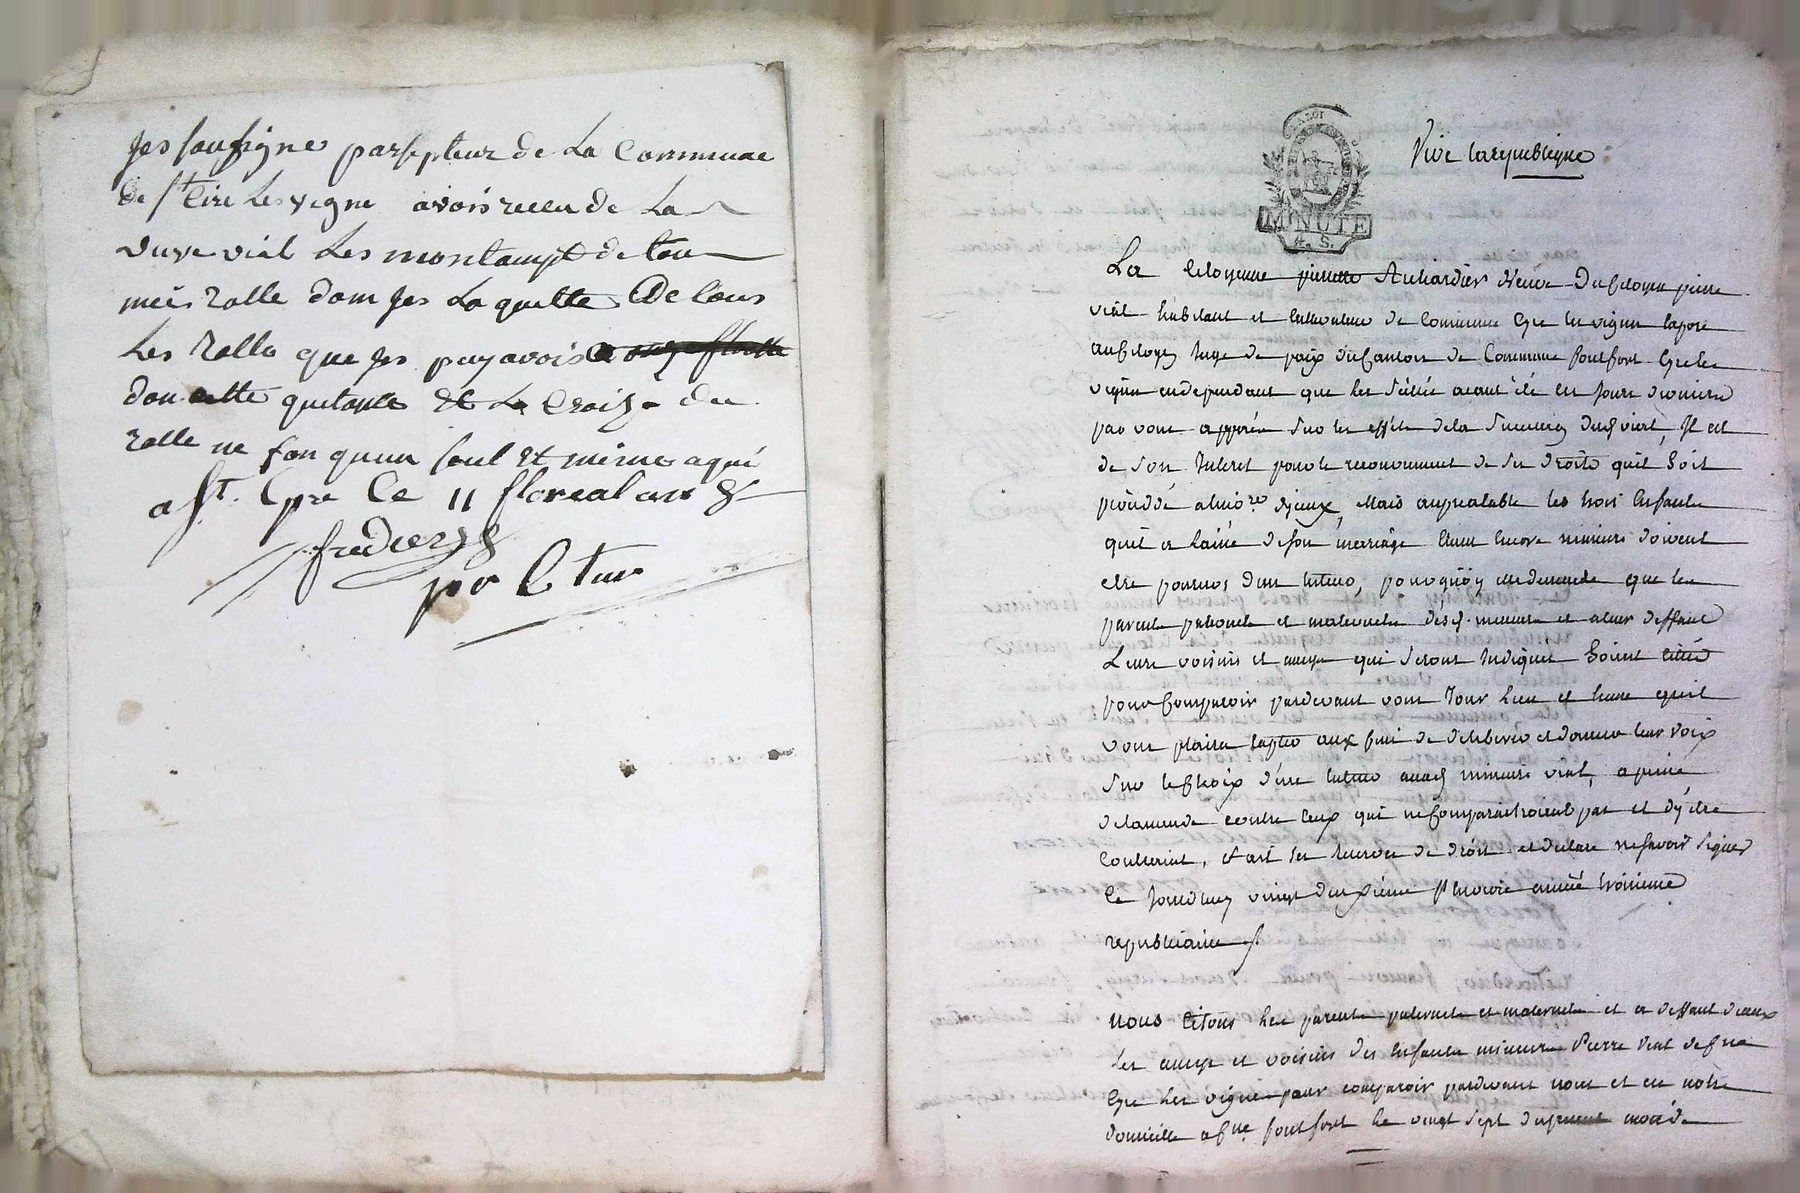 Jes sousigne parsepteur de La Commune
de St Cire Les vigne avois receu de La
vuve vial Les montampt de tou
meis rolle dom Jes La quelle De tous
Les Rolle que Jes puy avois
don cette quitanse Et La Croisse du
rolle ne fon qunn seul Et meime aqui
a St. Cyre Ce 11 floreal an 8
frederyk
per C teur
Vive la republique
MINUTE
4. S.
La Citoyenne pierrette Richardier veuve Du Citoyen pierre
vial habitant et cultivateur de Commune Cyre les vignes expose
au Citoyen Juge de paix du Canton de Commune fontfort Cyre les
vignes independant que les scellés aiant été ces jours derniers
par vous apposés sur les effets de la succession dud vial, Il est
de son Interet pour le recouvrement de ses droits quil soit
procédé a Inv.re d'Iceux, Mais au prealable les trois Enfants
quil a laissé de son mariage étant encore mineurs doivent
etre pourvus d'un tuteur, pourquoy elle demande que les
parents paternels et maternels desd. mineurs et a leur deffaut
Leurs voisins et amys qui seront Indiqués soient cittés
pour Comparoir pardevant vous Jour Lieu et heure quil
vous plaira aux fins de deliberer et donner leur voix
sur le Choix d'un tuteur auxd mineurs vial, a peine
d'amende contre Ceux qui ne Comparaitroient pas et d'y etre
Contraint, et ont les reserves de droit et declare ne savoir signer
Ce Jourdhuy vingt deuxieme Pluviose année troisieme
republicaine
Nous Citons les parents paternels et maternels et a deffaut d'iceux
Les amys et voisins des Enfants mineurs Pierre Vial de Cne
Cyre Les vignes pour comparoir pardevant nous et en notre
domicille a Cne fontfort le vingt sept du present mois de